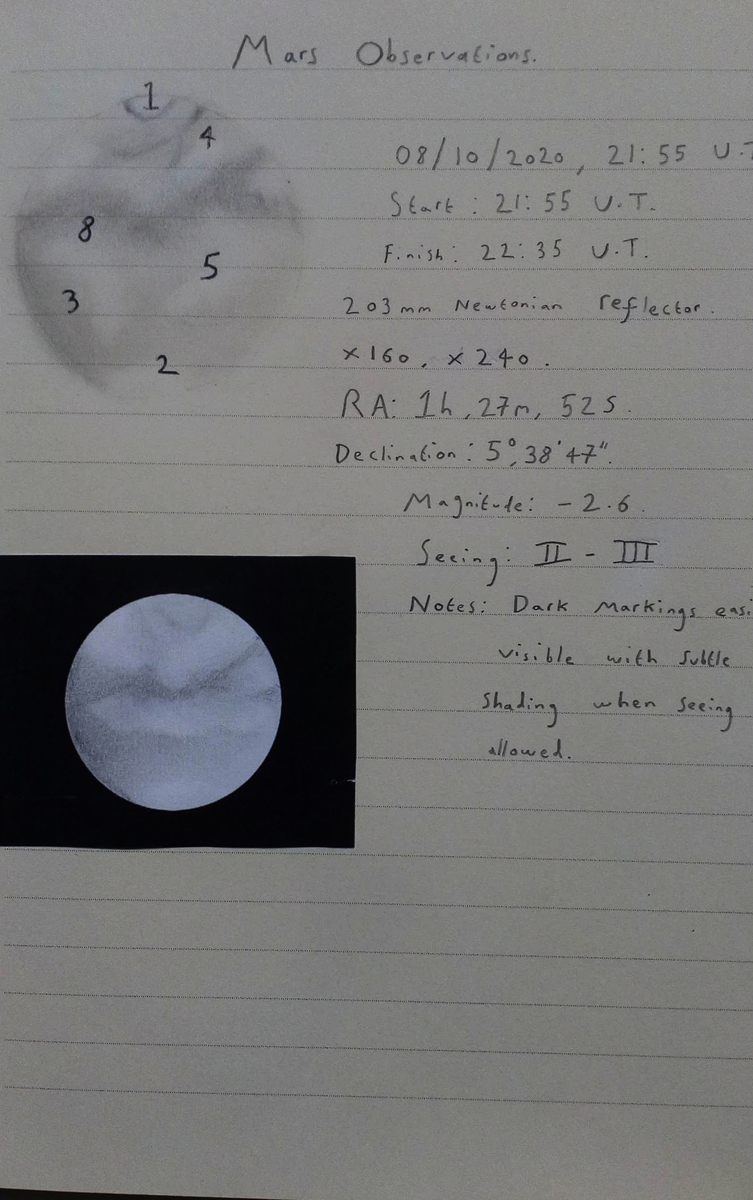 Mars Observations.
1
4
8
5
3
2
08/10/2020, 21:55 U.T
Start: 21:55 U.T.
Finish: 22:35 U.T.
203mm Newtonian reflector.
x160, x240.
RA: 1h, 27m, 52s.
Declination: 5°, 38' 47".
Magnitude: -2.6
Seeing: II - III
Notes: Dark Markings easi
visible with subtle
shading when seeing
allowed.